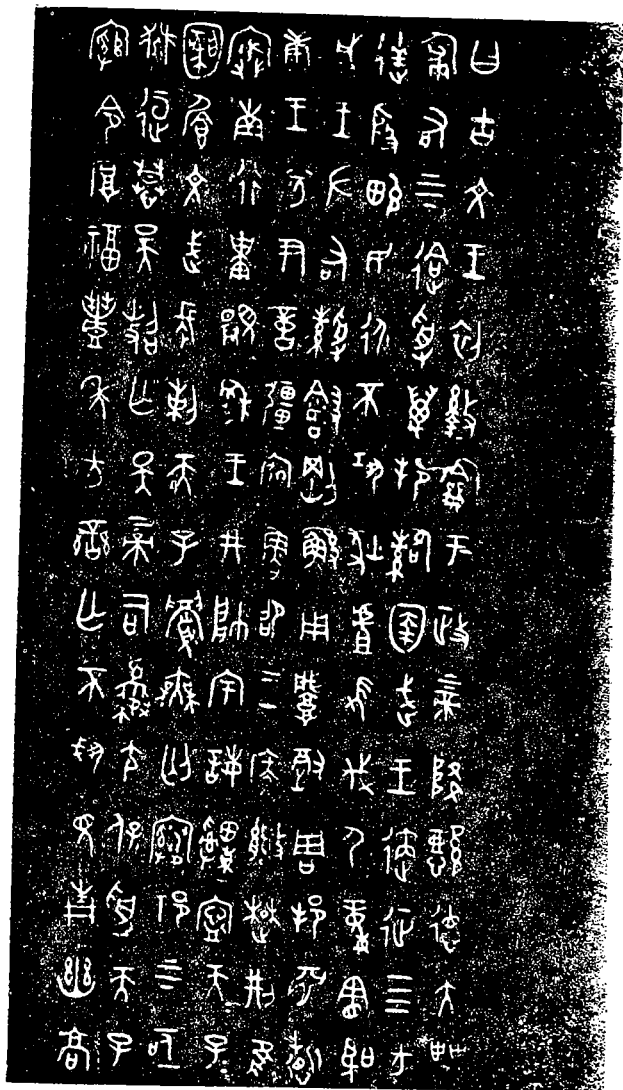 曰古文王初盭龢于政上帝降懿德大甹
匍有上下迨受萬邦𩁹圉武王遹征四方
達殷畯民永不巩狄虘伐尸童憲聖
成王左右綬剛鯀用肇徹周邦淵哲
康王兮尹億疆宖魯卲王廣能楚荊隹
寏南行祗覭穆王井帥宇誨申寧天子
文武長剌天子眉無匄祁上下亟
慕昊照亡斁上帝司夒尢保受天子
綰令厚福豐年方蠻亡不見青幽高